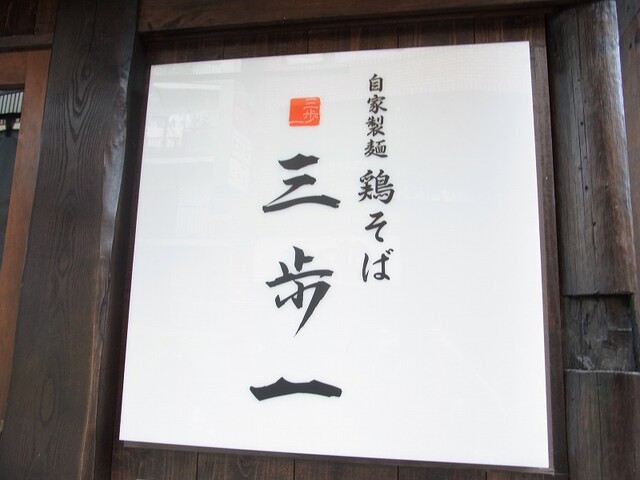 自家製麺 鶏そば
三歩一
三歩一